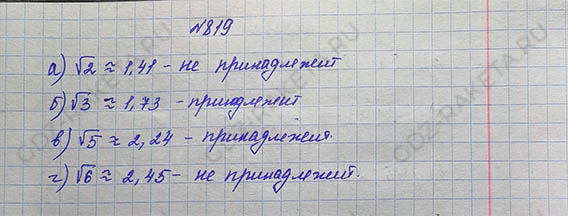 №819
а) √2 ≈ 1,41 - не принадлежит
б) √3 ≈ 1,73 - принадлежит
в) √5 ≈ 2,24 - принадлежит.
г) √6 ≈ 2,45 - не принадлежит.
GDZ-RAKETA.RU
GDZ-RAKETA.RU
GDZ-RAKETA.RU